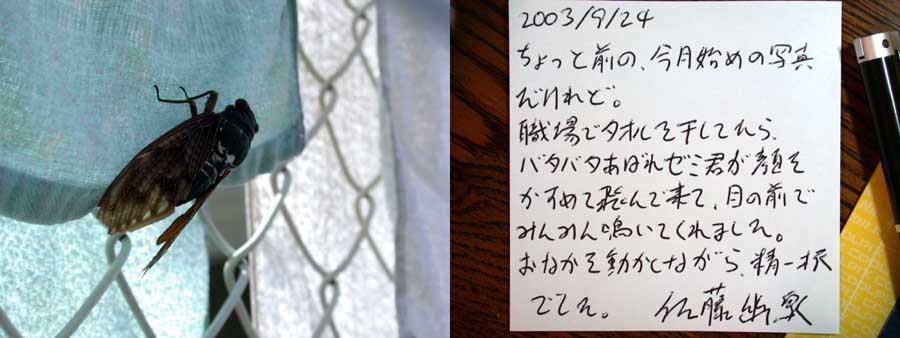 2003/9/24
ちょっと前の、今月始めの写真
だけれど。
職場でタオルを干してたら、
バタバタあばれゼミ君が顔を
かすめて飛んで来て、目の前で
みんみん鳴いてくれました。
おなかを動かしながら、精一杯
でした。 佐藤